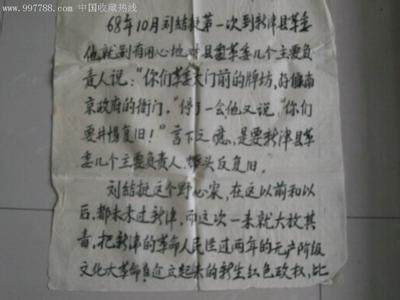 www.997788.com 中国收藏热线
68年10月刘结挺第一次到新津县革委
他就别有用心地对县革委几个主要负
责人说："你们革委大门前的牌坊，好像南
京政府的衙门。"停了一会他又说："你们
要井惕复旧！"言下之意，是要新津县革
委几个主要负责人，带头反复旧。
刘结挺这个野心家，在这以前和以
后，都未来过新津，而这次一来就大放其
音，把新津的革命人民经过两年的无产阶级
文化大革命自建立起来的新生红色政权，比